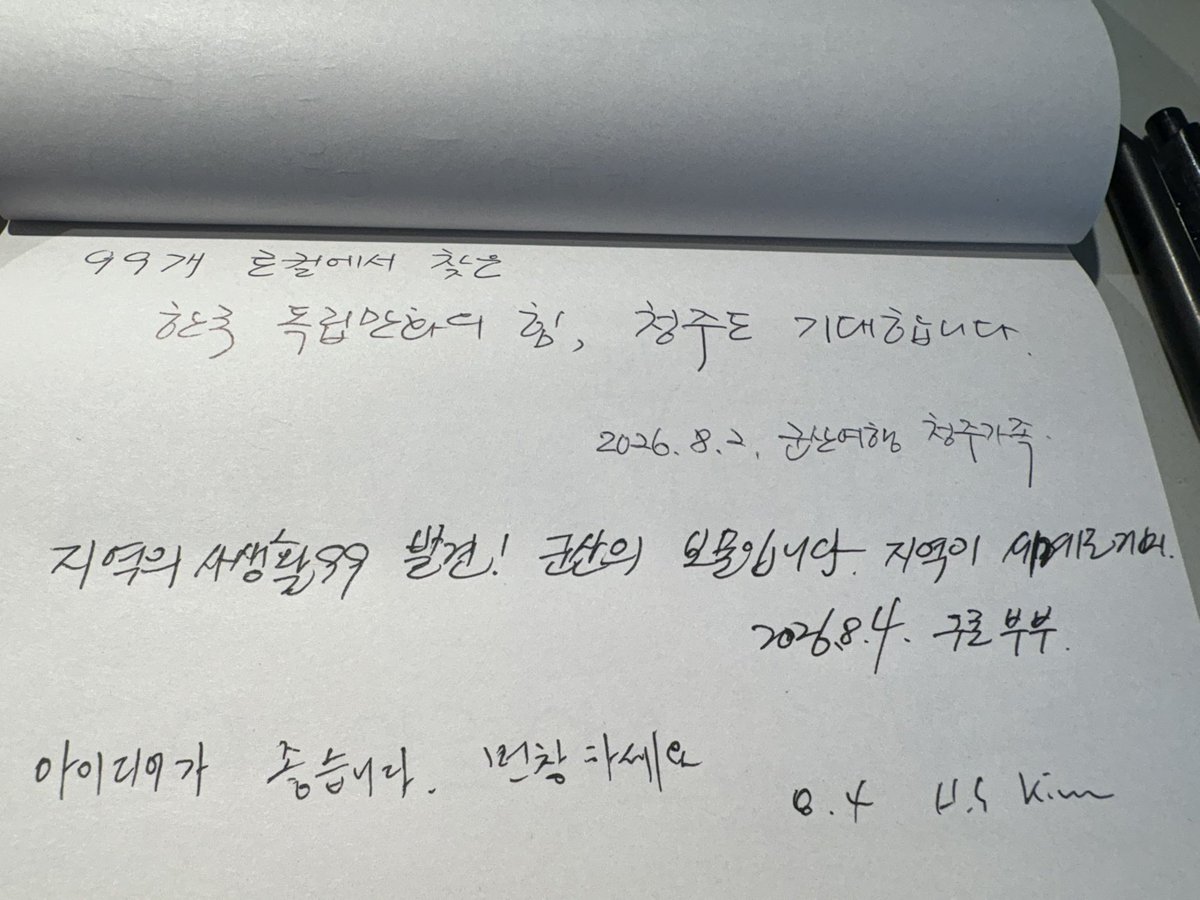 99개 로컬에서 찾은
한국 독립만화의 힘, 청주도 기대합니다.
2026.8.2. 군산여행 청주가족.
지역의 사생활99 발견! 군산의 보물입니다. 지역이
2026.8.4. 구로부부.
아이디어가 좋습니다. 번창하세요
8.4 H.S Kim